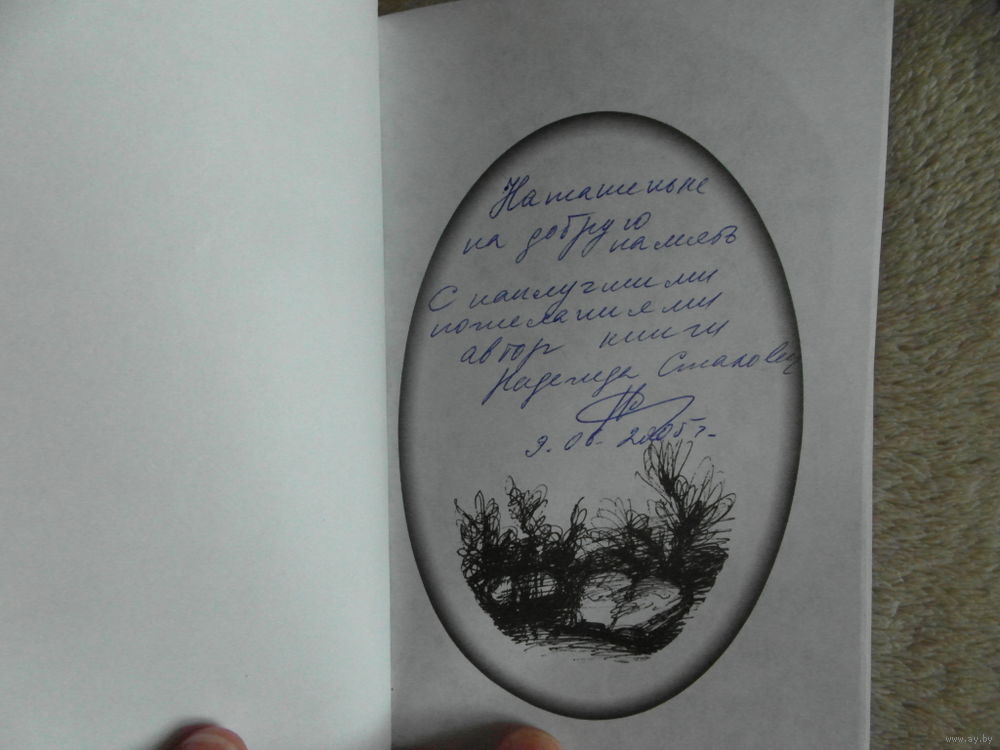 Наташеньке
на добрую
память
С наилучшими
пожеланиями
автор книги
Надежда Стахович
9.06.2005г.
www.ay.by